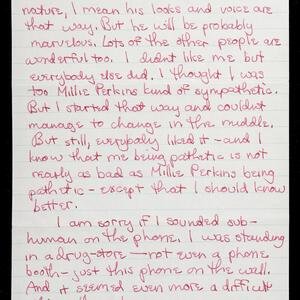 nature, I mean his looks and voice are
that way. But he will be probably
marvelous. Lots of the other people are
wonderful too. I didnt like me but
everybody else did. I thought I was
too Millie Perkins kind of sympathetic.
But I started that way and couldnt
manage to change in the middle.
But still, everybody liked it - and I
know that me being pathetic is not
nearly as bad as Millie Perkins being
pathetic - except that I should know
better.
I am sorry if I sounded sub-
human on the phone. I was standing
in a drug-store — not even a phone
booth - just this phone on the wall.
And it seemed even more a difficult